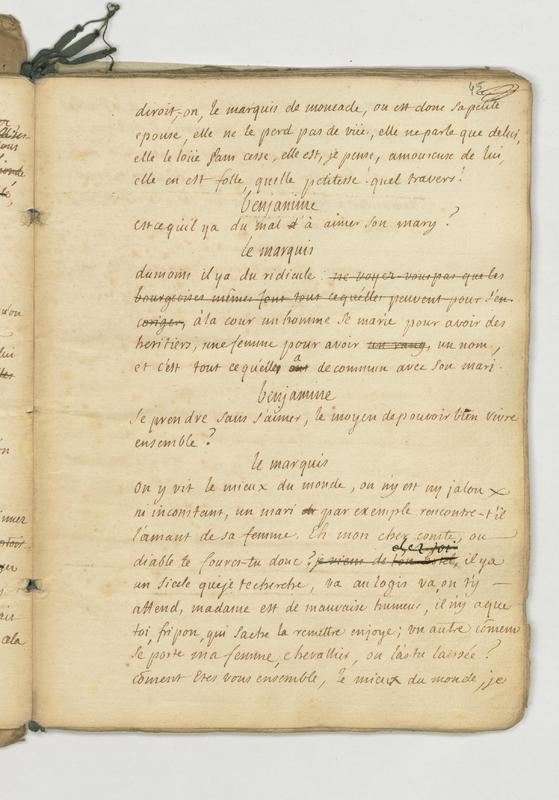 45
diroit-on, le marquis de moncade, ou est donc sa petite
epouse, elle ne le perd pas de vüe, elle ne parle que de lui,
elle le loüe sans cesse, elle est, je pense, amoureuse de lui,
elle en est folle quelle petitesse! quel travers!
benjamine
est ce qu'il ya du mal d à aimer son mary?
le marquis
du moins il ya du ridicule. ne voyez-vous pas que les
bourgeoises mêmes font tout ce qu'elles peuvent pour s'en
coriger, à la cour un homme se marie pour avoir des
heritiers, une femme pour avoir un rang, un nom,
et c'est tout ce qu'elle a ont de commun avec son mari.
benjamine
se prendre sans s'aimer, le moyen de pouvoir bien vivre
ensemble?
le marquis
on y vit le mieux du monde, on n'y est ny jaloux
ni inconstant, un mari par exemple rencontre-t'il
l'amant de sa femme. Eh mon cher comte, ou
chez toi
diable te foures-tu donc? je viens de ton hotel, il ya
un siecle que je te cherche, va au logis va, on t'y
attend, madame est de mauvaise humeur, il n'y a que
toi, fripon, qui sache la remettre enjoye; un autre coment
se porte ma femme, chevallier, ou l'as tu laissée?
coment etes vous ensemble, le mieux du monde, je